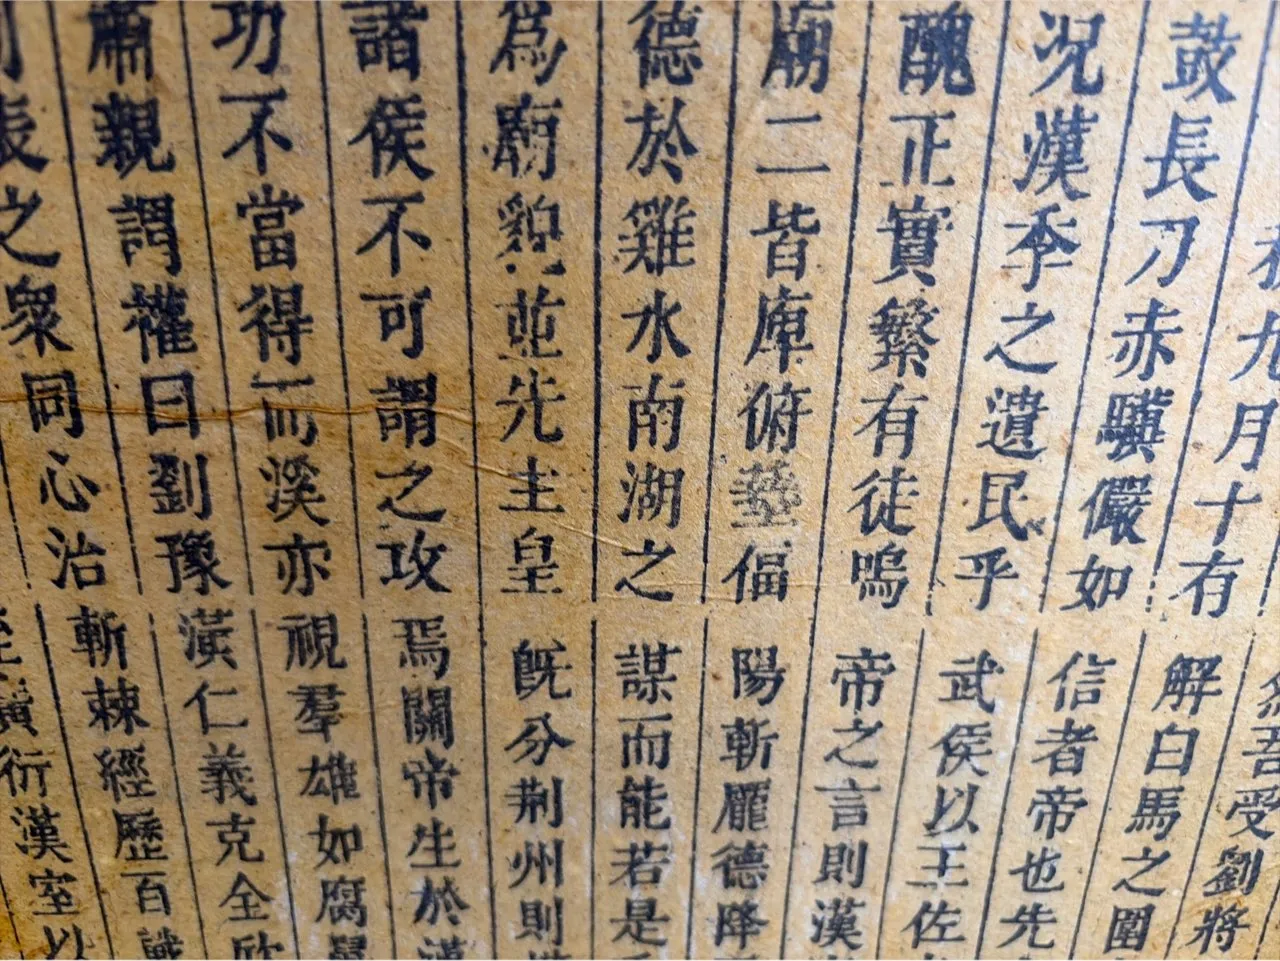 九月十有
鼓長刀赤驥儼如
況漢季之遺民乎
醜正實繁有徒嗚
廟二皆庳俯偪
德於雞水南湖之
為廟貌並先主皇
諸侯不可謂之攻
功不當得而溪亦
肅親謂權曰劉豫
表之衆同心治
吾受劉將
解白馬之圍
信者帝也先
武侯以王佐
帝之言則漢
陽斬龐德降
謀而能若是
既分荆州則
焉關帝生於漢
視羣雄如腐鼠
漢仁義克全欣
斬棘經歷百戰
衍漢室以